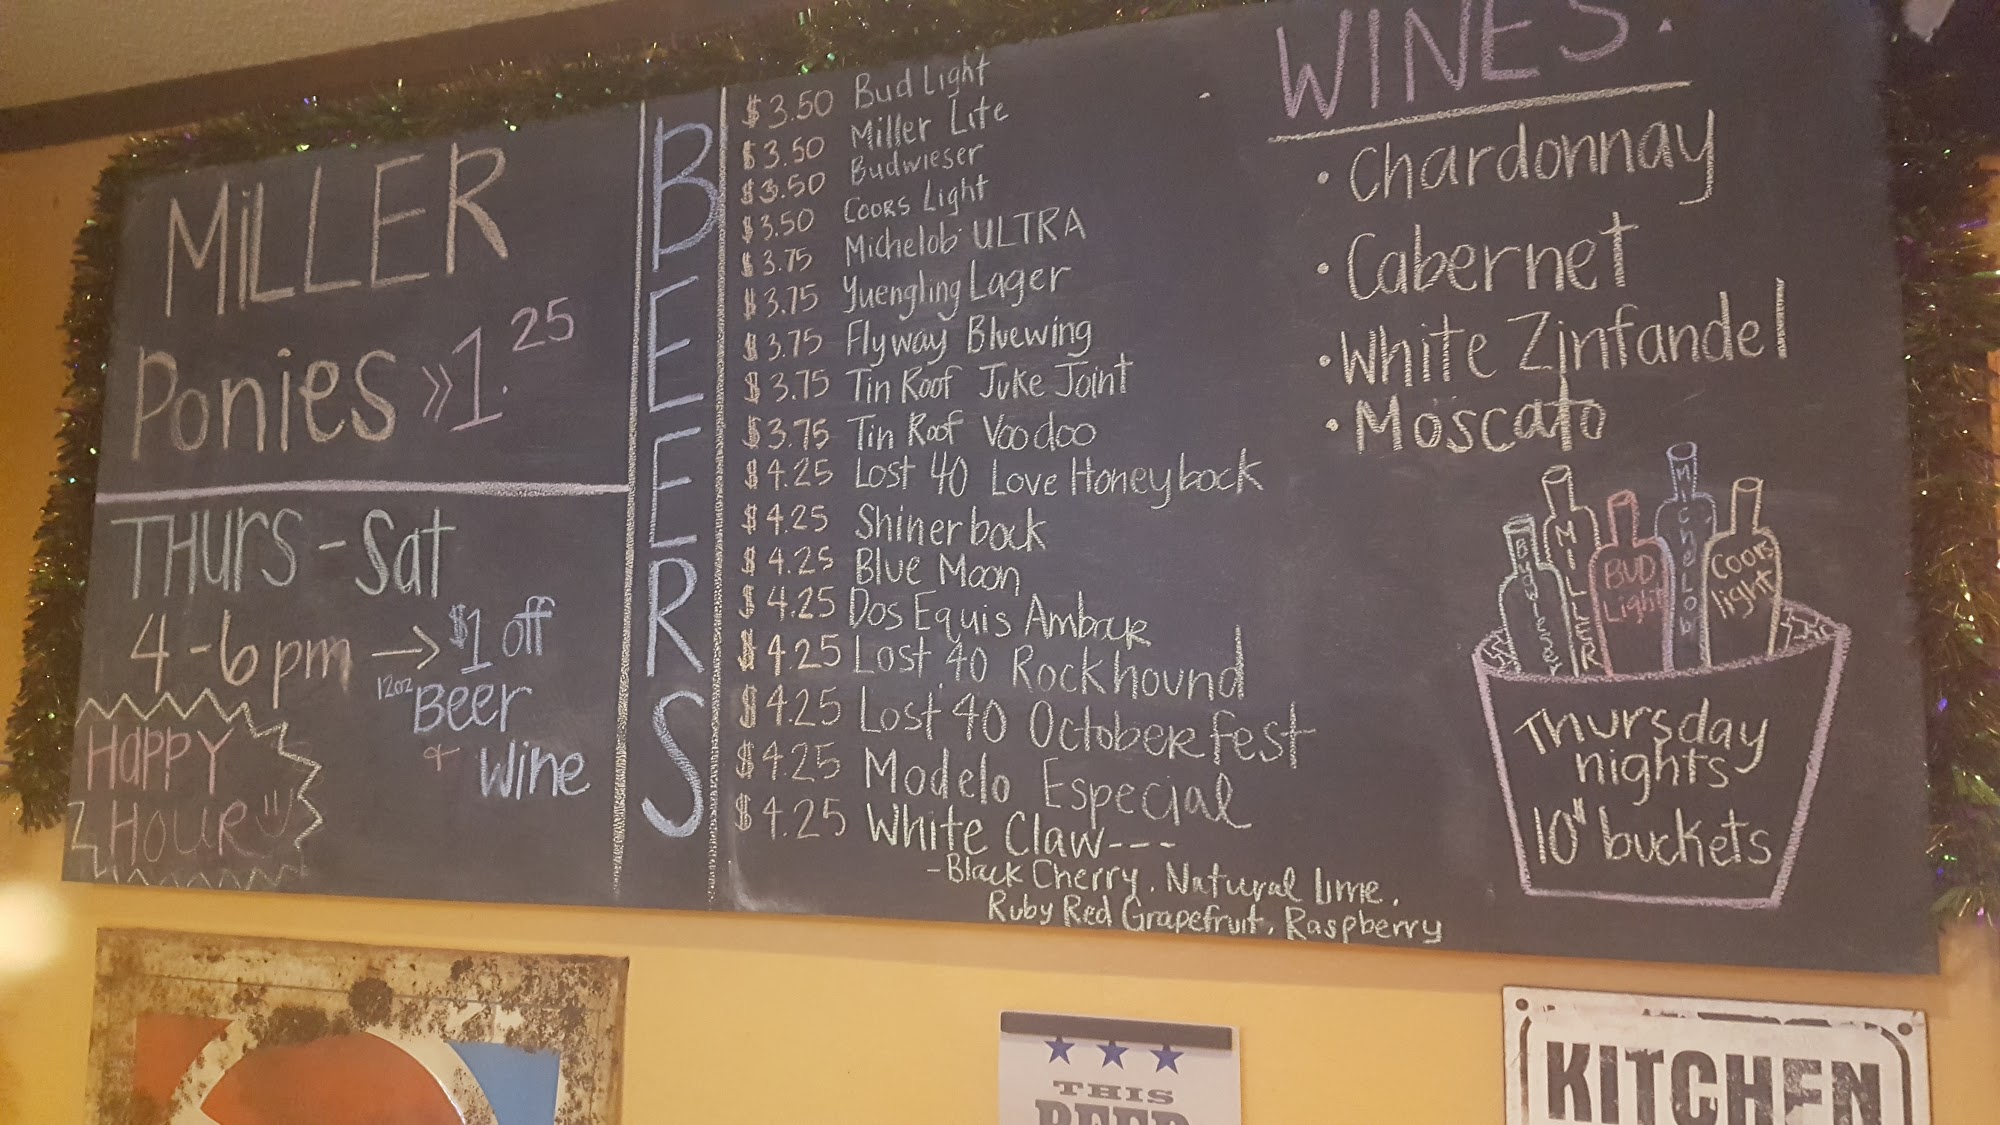 MiLLER
Ponies >> 1.25
THURS - Sat
4-6pm → $1 off
12oz Beer
+ Wine
HAPPY
HOUR
BEERS
$3.50 Bud Light
$3.50 Miller Lite
$3.50 Budwieser
$3.50 Coors Light
$3.75 Michelob ULTRA
$3.75 Yuengling Lager
$3.75 Flyway Bluewing
$3.75 Tin Roof Juke Joint
$3.75 Tin Roof Voodoo
$4.25 Lost 40 Love Honeybock
$4.25 Shinerbock
$4.25 Blue Moon
$4.25 Dos Equis Ambar
$4.25 Lost 40 Rockhound
$4.25 Lost 40 Octoberfest
$4.25 Modelo Especial
$4.25 White Claw---
-Black Cherry, Natural lime,
Ruby Red Grapefruit, Raspberry
WINES:
• Chardonnay
• Cabernet
• White Zinfandel
• Moscato
Budwieser
MILLER
BUD Light
Michelob
Coors light
Thursday
nights
10" buckets
THIS
BEER
KITCHEN